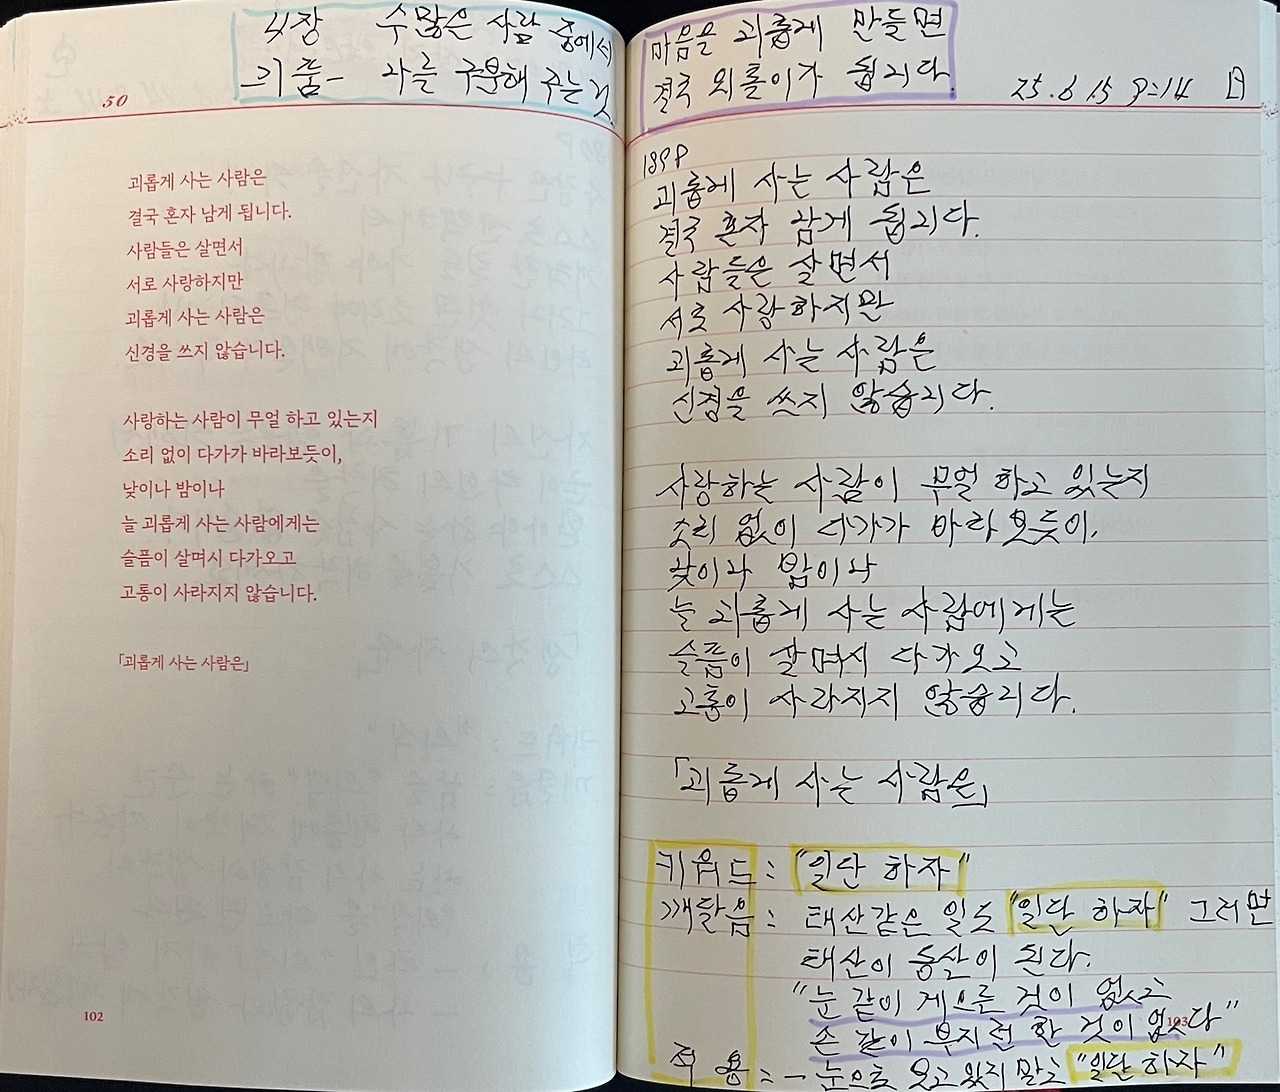 4장 수많은 사람 중에서
기품- 나를 구분해 주는 것
50
괴롭게 사는 사람은
결국 혼자 남게 됩니다.
사람들은 살면서
서로 사랑하지만
괴롭게 사는 사람은
신경을 쓰지 않습니다.
사랑하는 사람이 무얼 하고 있는지
소리 없이 다가가 바라보듯이,
낮이나 밤이나
늘 괴롭게 사는 사람에게는
슬픔이 살며시 다가오고
고통이 사라지지 않습니다.
「괴롭게 사는 사람은」
102
마음을 괴롭게 만들면
결국 외톨이가 됩니다
25.6.15 9:14 日
189P
괴롭게 사는 사람은
결국 혼자 남게 됩니다.
사람들은 살면서
서로 사랑하지만
괴롭게 사는 사람은
신경을 쓰지 않습니다.
사랑하는 사람이 무얼 하고 있는지
소리 없이 다가가 바라보듯이,
낮이나 밤이나
늘 괴롭게 사는 사람에게는
슬픔이 살며시 다가오고
고통이 사라지지 않습니다.
「괴롭게 사는 사람은」
키워드 : "일단 하자"
깨달음 : 태산같은 일도 "일단 하자" 그러면
태산이 동산이 된다.
"눈 같이 게으른 것이 없고
손 같이 부지런 한 것이 없다"
103
적용 : - 눈으로 보고 있지 말고 "일단 하자"